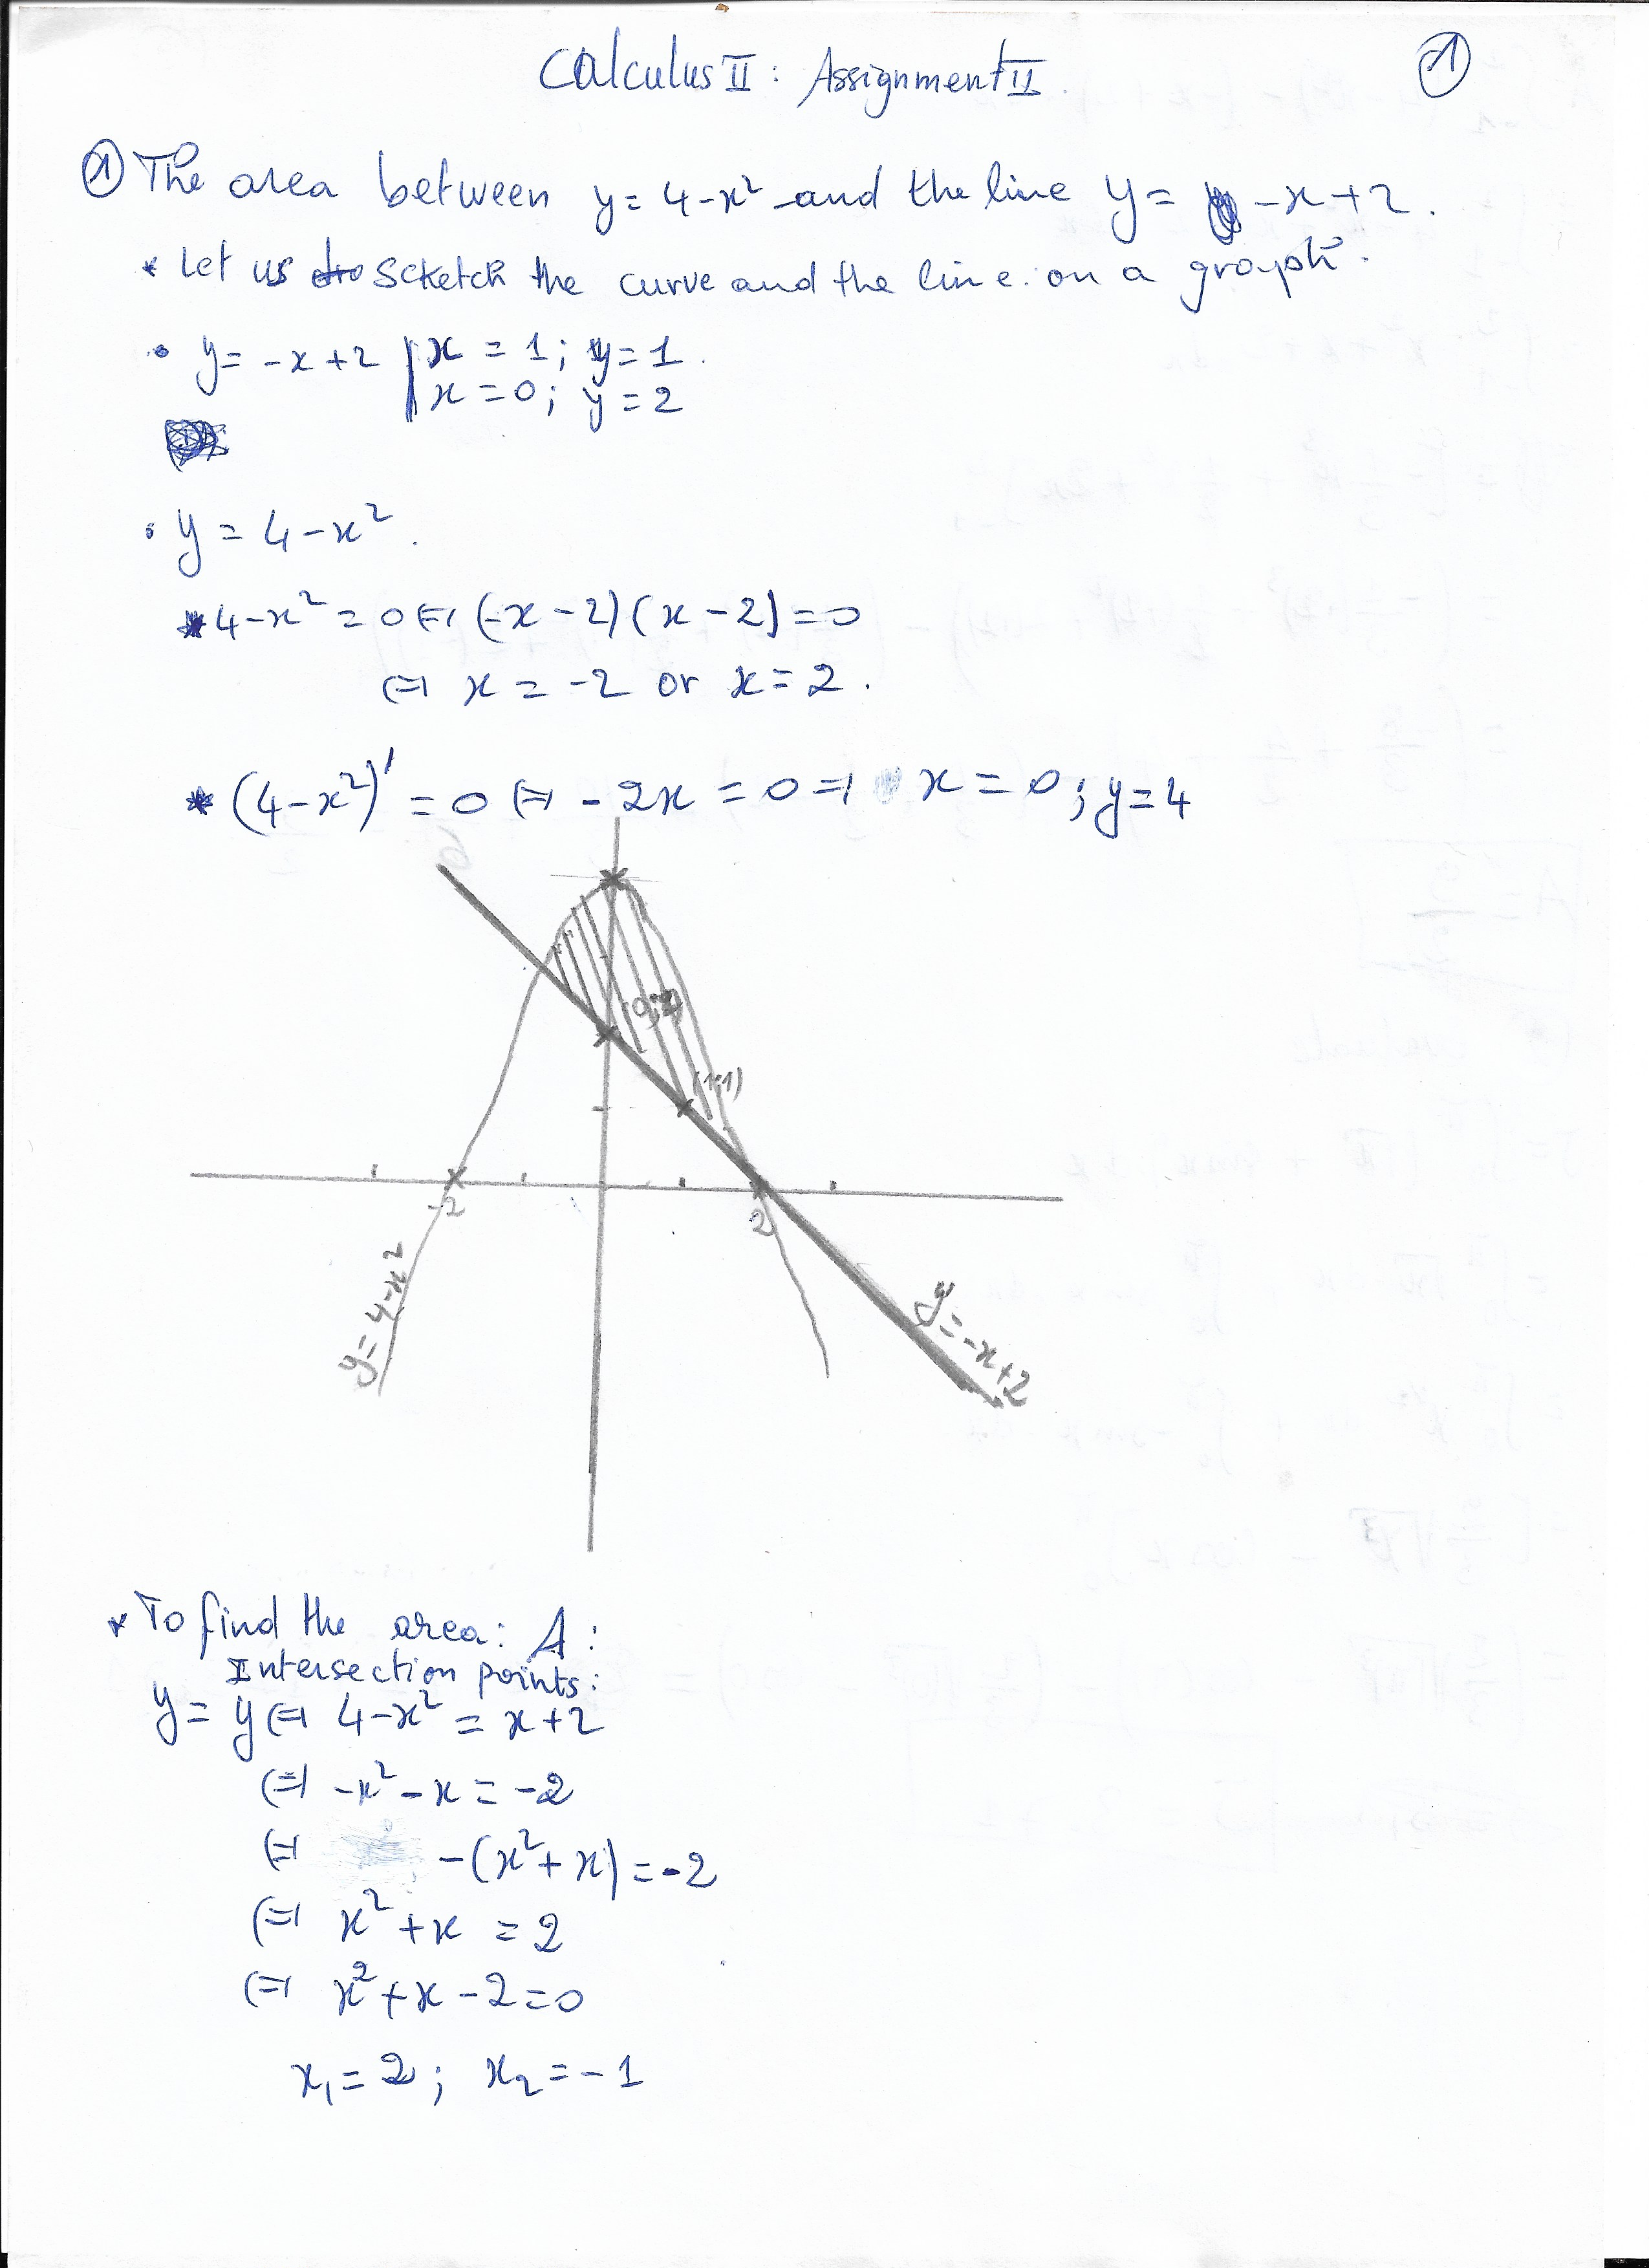 Calculus II : Assignment II.
①
① The area between y = 4-x² and the line y = -x+2.
* Let us scketch the curve and the line on a graph.
• y = -x+2 | x = 1; y = 1.
x = 0; y = 2
• y = 4-x².
* 4-x² = 0 ⇔ (-x-2)(x-2) = 0
⇔ x = -2 or x = 2.
* (4-x²)' = 0 ⇔ -2x = 0 ⇒ x = 0; y = 4
(1;1)
-2
2
y = 4-x²
y = -x+2
* To find the area: A:
Intersection points:
y = y ⇔ 4-x² = x+2
⇔ -x²-x = -2
⇔ -(x²+x) = -2
⇔ x²+x = 2
⇔ x²+x-2 = 0
x₁ = 2; x₂ = -1